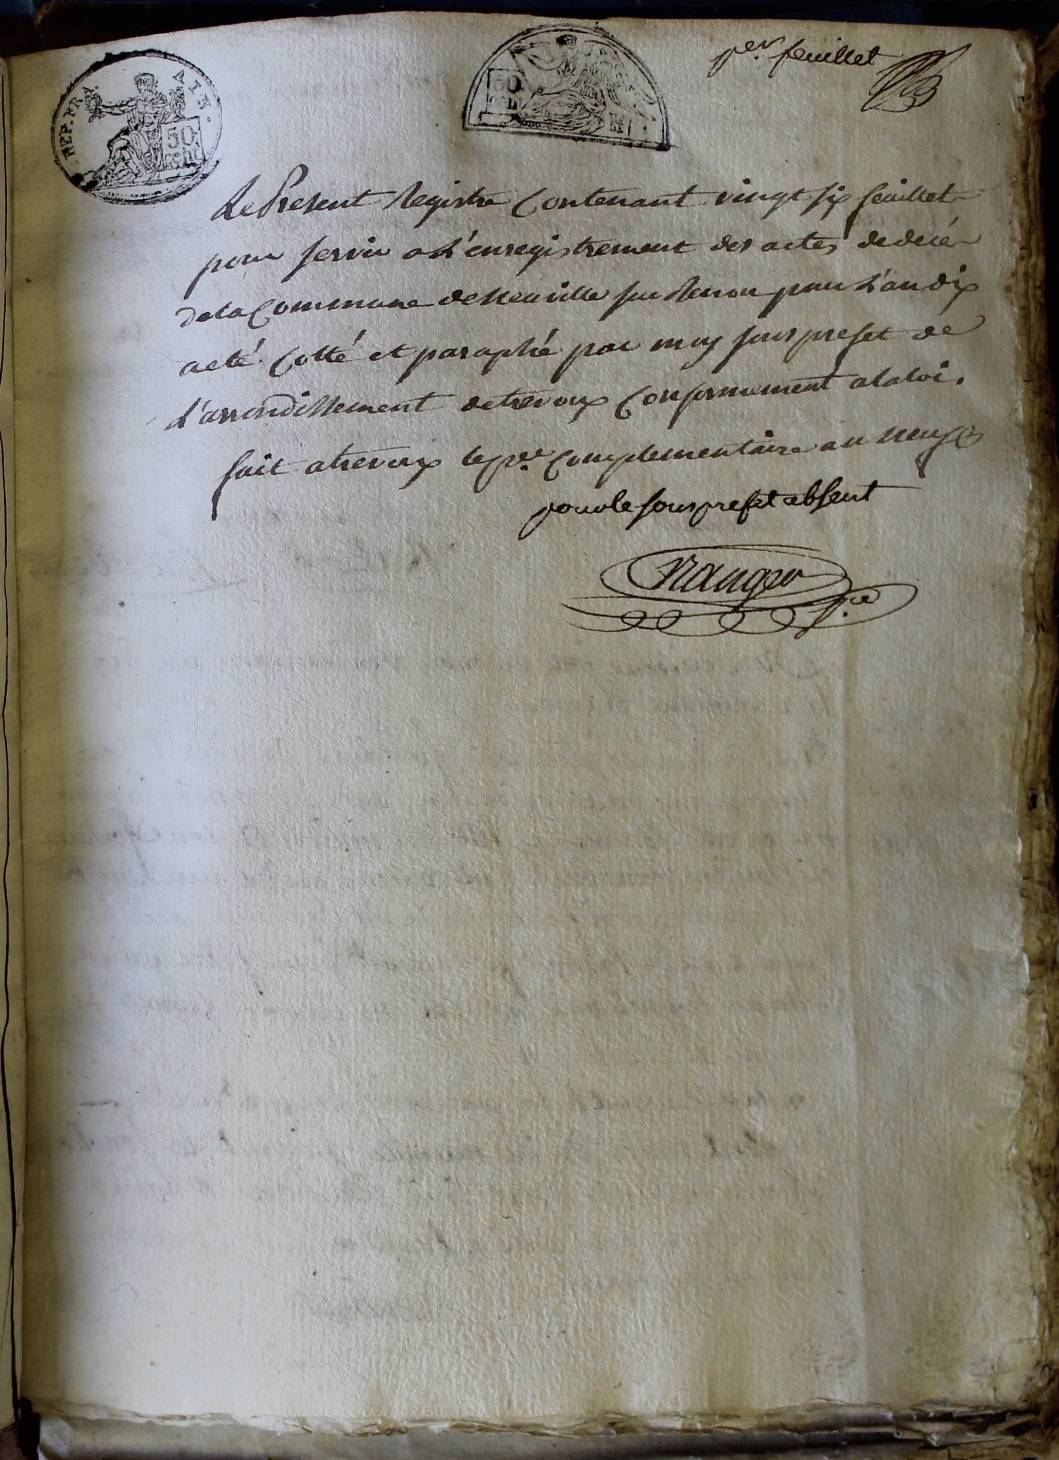 per feuillet
REP. FRA
AIN.
50
50
Le Present Registre Contenant vingt six feuillet
pour servir a L'enregistrement des actes de decés
de la Commune de Neuville sur Renon pour L'an dix
a eté Cotté et paraphé par moy sous prefet de
L'arrondissement de trevoux Conformement a la loi.
fait a trevoux le per Complementaire an neuf
pour le sous prefet absent